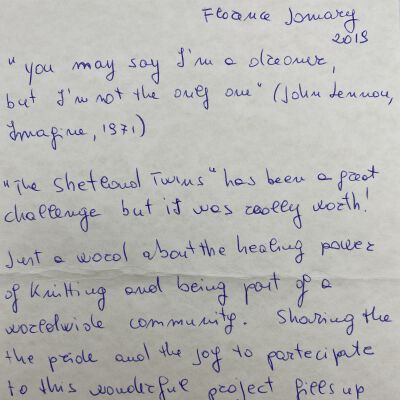 Florence January
2019
"you may say I'm a dreamer,
but I'm not the only one" (John Lennon,
Imagine, 1971)
"The Shetland Twins" has been a great
challenge but it was really worth!
Just a word about the healing power
of Knitting and being part of a
worldwide community. Sharing the
the pride and the joy to partecipate
to this wonderful project fills up